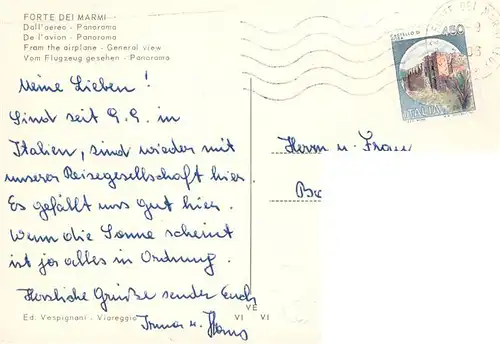 FORTE DEI MARMI
Dall'aereo - Panorama
De l'avion - Panorama
From the airplane - General view
Vom Flugzeug gesehen - Panorama
Meine Lieben!
Sind seit 9.9. in
Italien, sind wieder mit
unserer Reisegesellschaft hier.
Es gefällt uns gut hier.
Wenn die Sonne scheint
ist ja alles in Ordnung.
Herzliche Grüße senden Euch
Irma u. Hans
Ed. Vespignani - Viareggio
VE
VI VI
450
CASTELLO DI
ITALIA
Herrn u. Frau